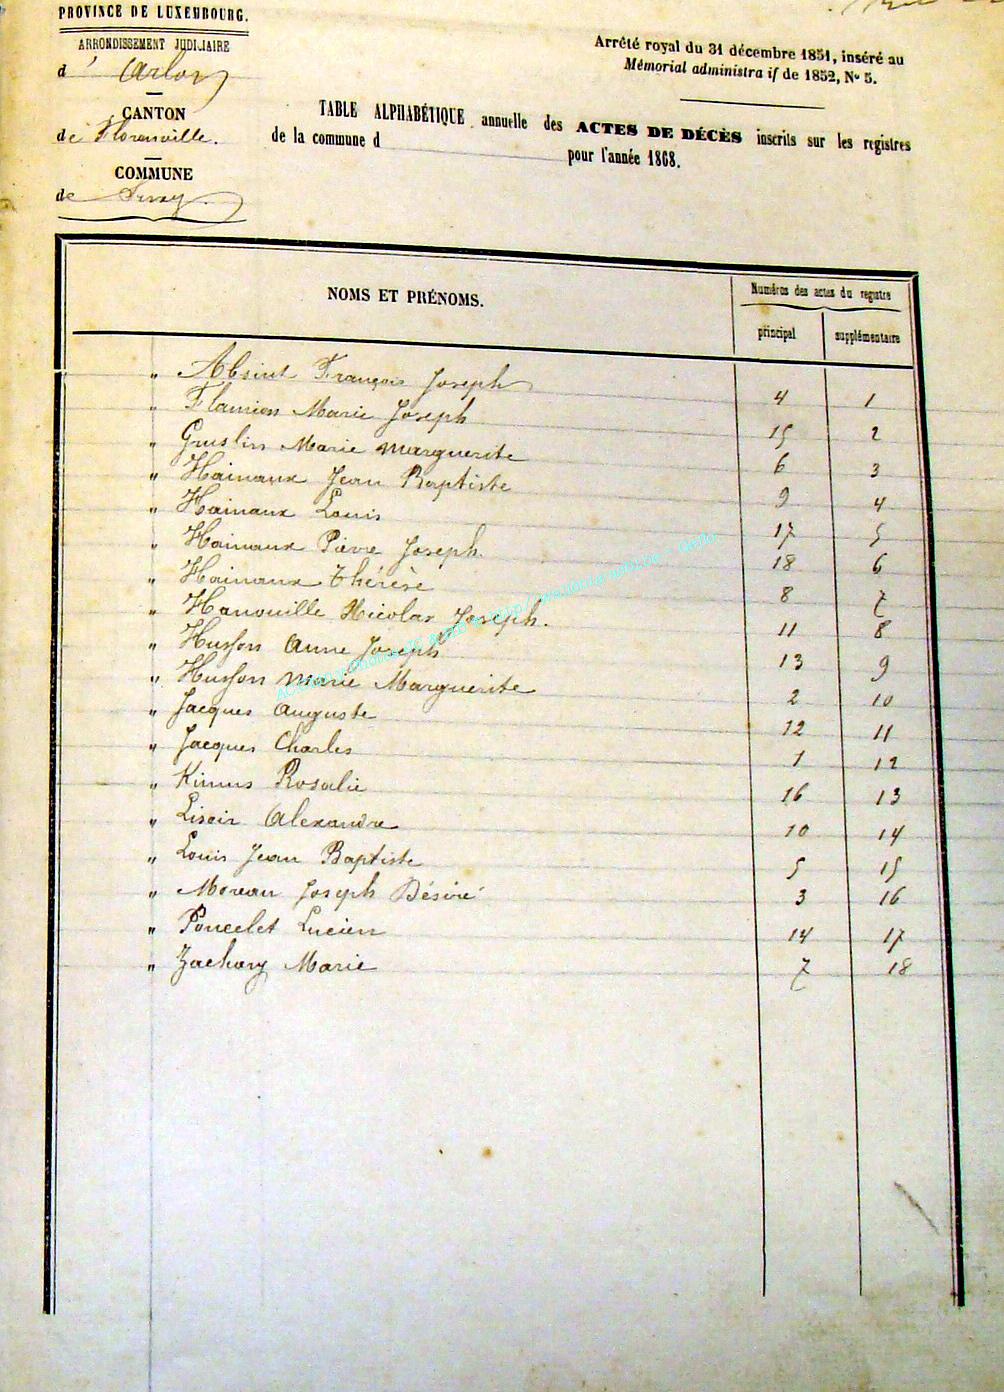 PROVINCE DE LUXEMBOURG.
ARRONDISSEMENT JUDICIAIRE
d' Arlon
CANTON
de Florenville.
COMMUNE
de
Arrêté royal du 31 décembre 1851, inséré au
Mémorial administra if de 1852, No 5.
TABLE ALPHABÉTIQUE annuelle des ACTES DE DÉCÈS inscrits sur les registres
de la commune d
pour l'année 1868.
NOMS ET PRÉNOMS.
Numéros des actes du registre
principal
supplémentaire
" Absint François Joseph 4 1
" Flamion Marie Joseph 15 2
" Gruslin Marie Marguerite 6 3
" Hainaux Jean Baptiste 9 4
" Hainaux Louis 17 5
" Hainaux Pierre Joseph 18 6
" Hainaux Thérèse 8 7
" Hanouille Nicolas Joseph. 11 8
" Husson Anne Joseph 13 9
" Husson Marie Marguerite 2 10
" Jacques Auguste 12 11
" Jacques Charles 1 12
" Rosalie 16 13
" Lisoir Alexandre 10 14
" Louis Jean Baptiste 5 15
" Moreau Joseph Désiré 3 16
" Poncelet Lucien 14 17
" Zachary Marie 7 18